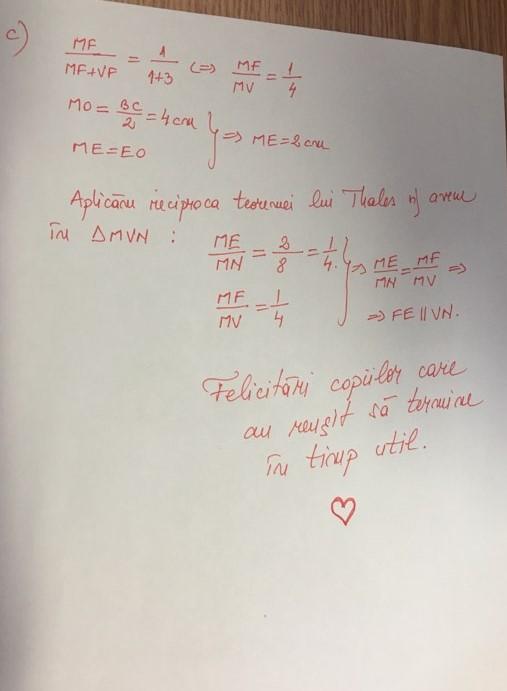 c)
MF/MF+VF = 1/1+3 (=) MF/MV = 1/4
MO = BC/2 = 4 cm
ME = EO } => ME = 2 cm
Aplicăm reciproca teoremei lui Thales și avem
în ΔMVN :
ME/MN = 2/8 = 1/4.
MF/MV = 1/4 } => ME/MN = MF/MV =>
=> FE || VN.
Felicitări copiilor care
au reușit să termine
în timp util.
♡